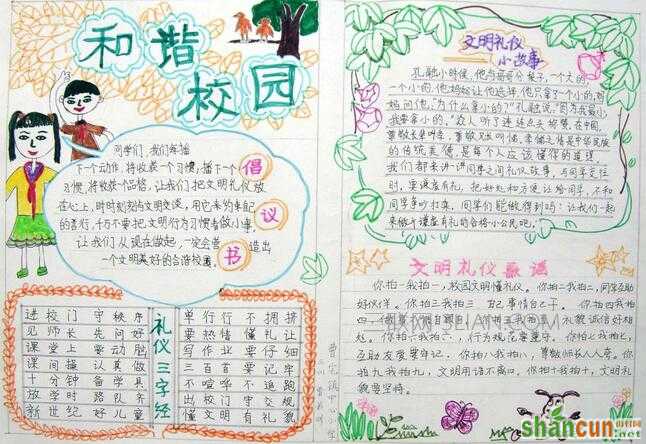 和谐
校园
同学们，我们每播
下一个动作，将收获一个习惯，播下一个
习惯，将收获一个品格，让我们把文明礼仪放
在心上，时时刻刻有文明交谈，用它来约束自己
的言行，千万不要把文明行为习惯看做小事，
让我们从现在做起，一定会营造出
一个文明美好的合谐校园。
倡
议
书
礼仪三字经
进校门 守秩序
见师长 先问好
课堂上 要动脑
课间操 认真做
十分钟 备学具
放学时 路队齐
新世纪 好儿童
单行行 不拥挤
要热情 懂礼让
写作业 要仔细
三百首 要记牢
不喧哗 不追跑
出校门 守交规
懂文明 有礼貌
文明礼仪
小故事
孔融小时候，他与哥哥分梨子，一个大的
一个小的，他妈妈让他选择，他只拿了一个小的，妈
妈问他，为什么拿小的？"孔融说，"因为我最小，
我要拿小的，"众人听了连连点头称赞，在中国，
的传统美德，是每个人应该懂得的道理，
我们都来讲一讲同学之间礼仪故事，与同学交往
时，要谦虚有礼，把好处和方便让给同学，不和
同学争吵打架，同学们能做得到吗？让我们一起
来做个谦虚有礼的合格小公民吧！
文明礼仪歌谣
你拍一我拍一，校园文明懂礼仪。你拍二我拍二，同学互助
好伙伴。你拍三我拍三 自己事情自己干。你拍四我拍
礼貌诚信好相
处。你拍六我拍六，行为规范要遵守。
互助友爱要牢记。你拍八我拍八，尊敬师长人人夸。你
拍九我拍九，文明用语不离口。你拍十我拍十，文明礼
貌要坚持。
shancun
.net